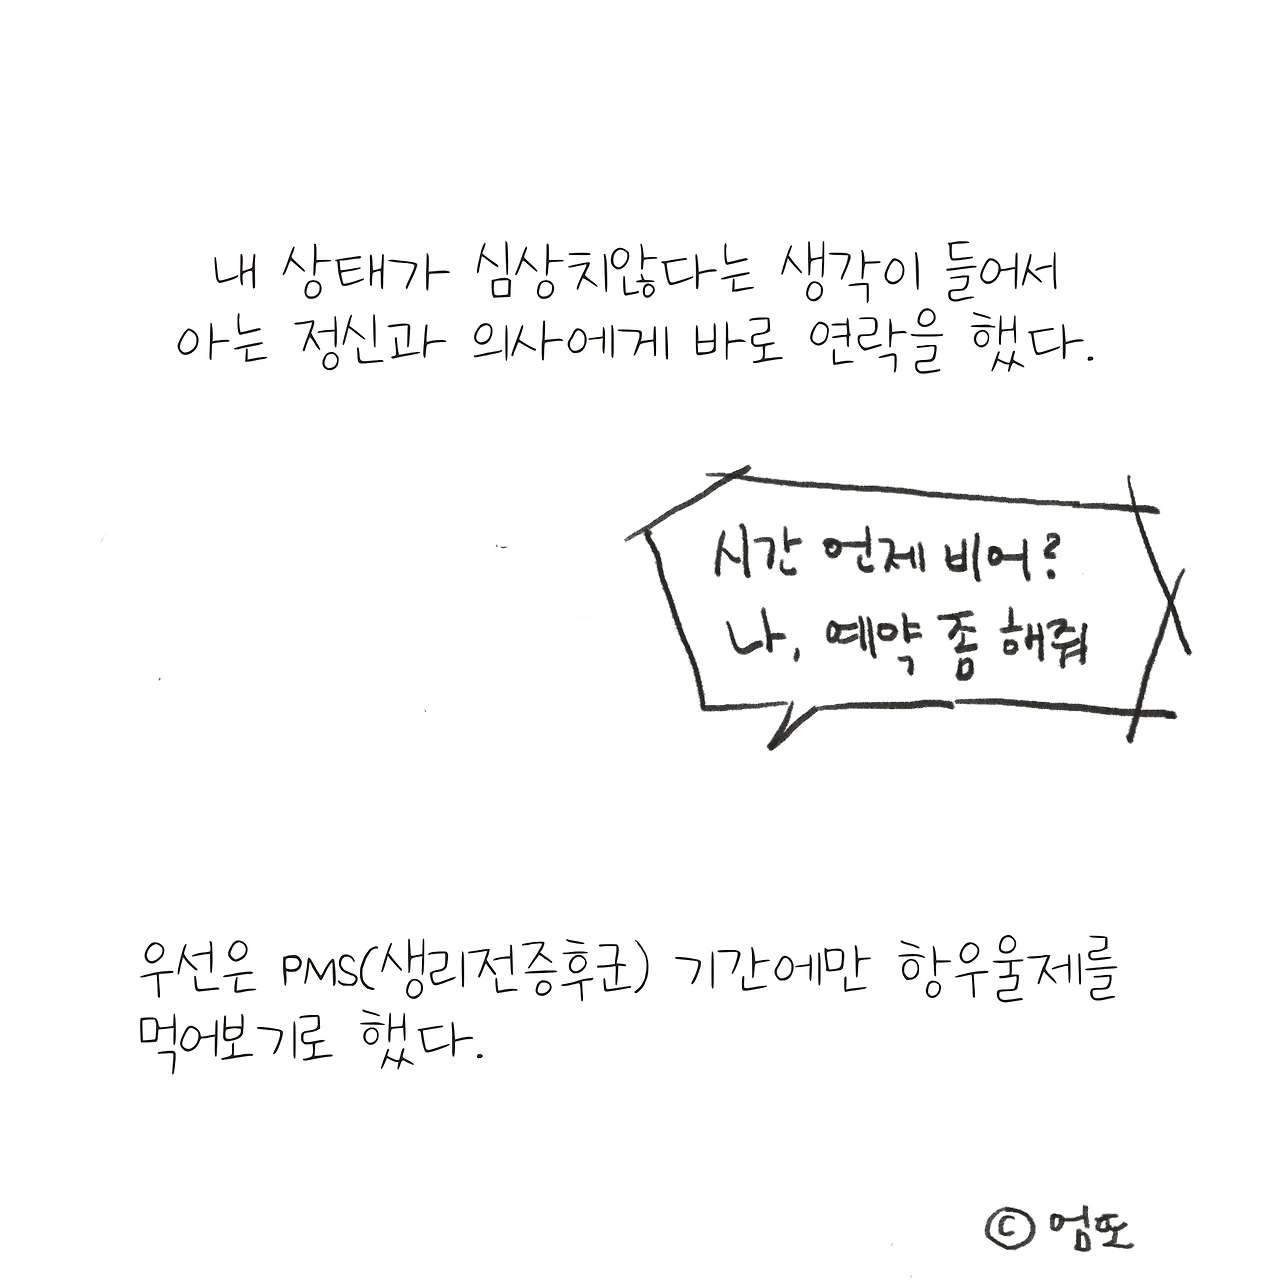 내 상태가 심상치않다는 생각이 들어서
아는 정신과 의사에게 바로 연락을 했다.
시간 언제 비어?
나, 예약 좀 해줘
우선은 PMS(생리전증후군) 기간에만 항우울제를
먹어보기로 했다.
© 엄또